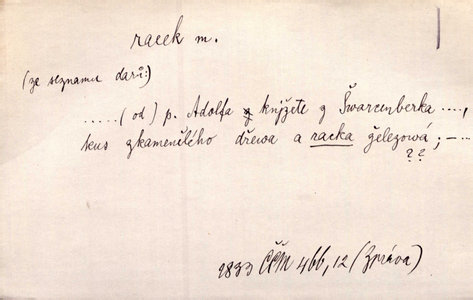 racek m.
(ze seznamu darů:)
.....(od) p. Adolfa knjžete z Šwarcenberka ....,
kus zkamenělého dřewa a racka železowá; –..
??
1833 ČČM 466, 12 (Zpráva)